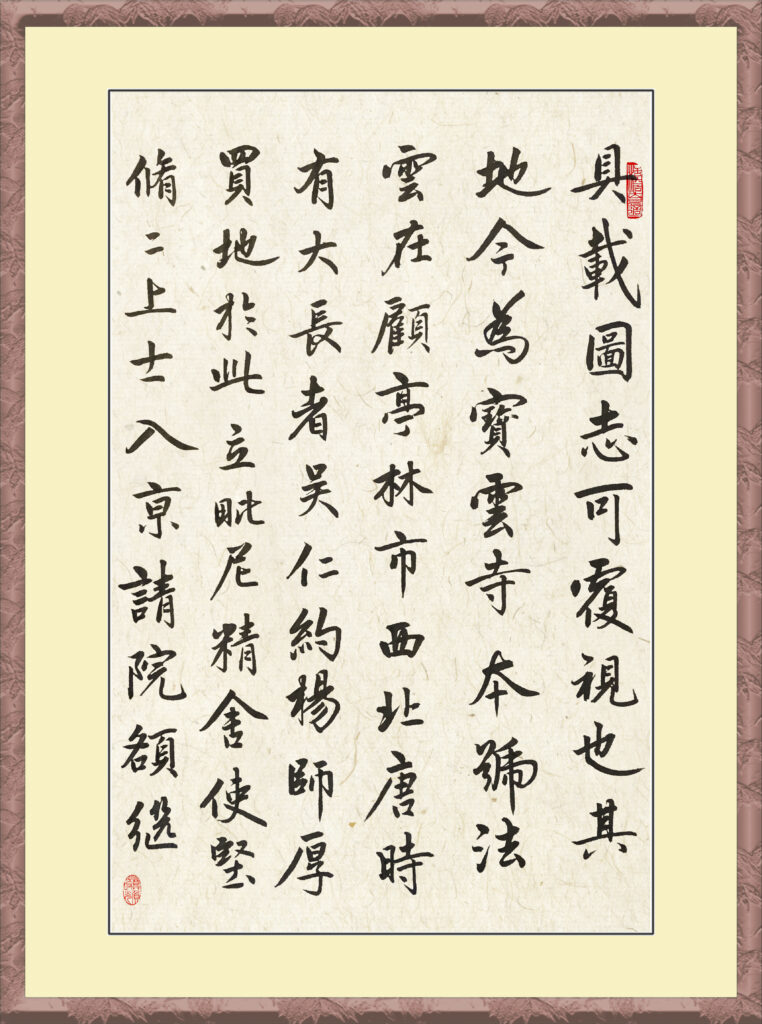 具載圖志可覆視也其
地今為寶雲寺本號法
雲在顧亭林市西北唐時
有大長者吴仁約楊師厚
買地於此立毗尼精舍使堅
脩二上士入京請院額繼